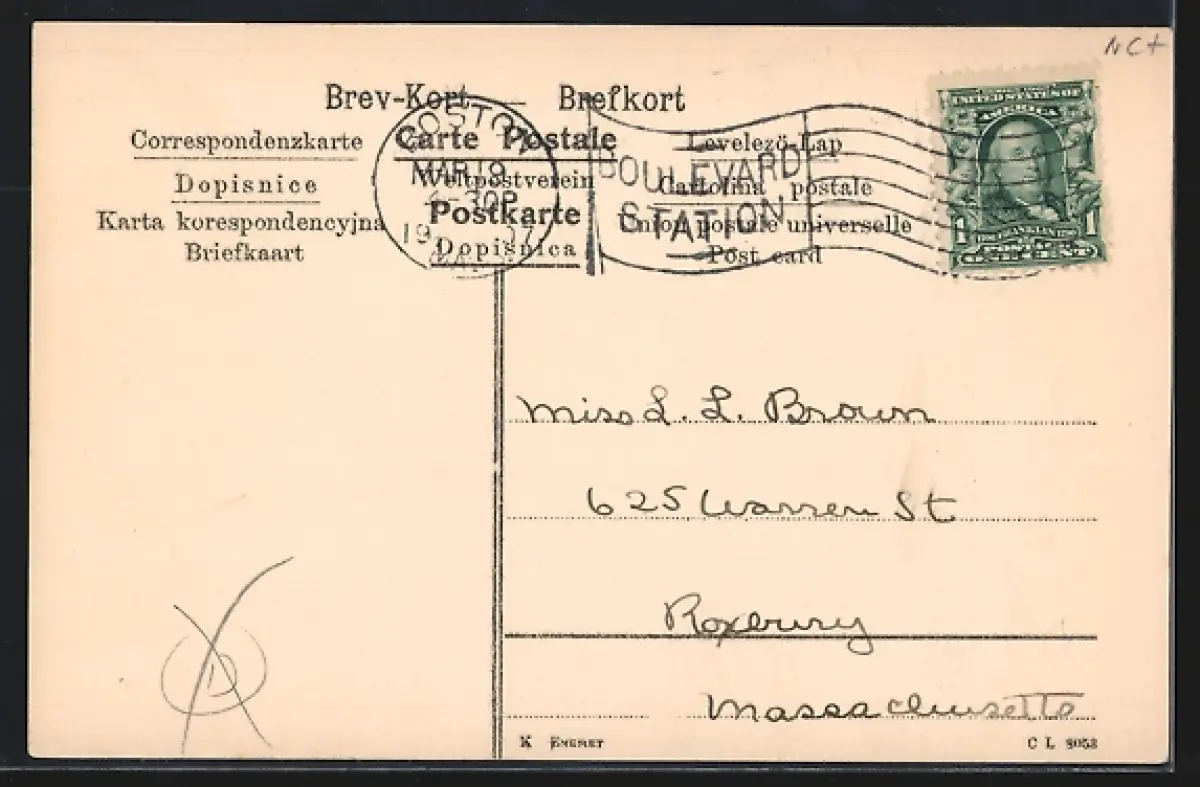 NC+
Brev-Kort — Brefkort
Correspondenzkarte Carte Postale Levelező-Lap
Dopisnice Weltpostverein Cartolina postale
Karta korespondencyjna Postkarte Union postale universelle
Briefkaart Dopisnica Post card
BOSTON
MAR 19
30P
19 07
BOULEVARD
STATION
UNITED STATES OF
AMERICA
1 1
ONE CENT
Miss L. L. Brown
625 Warren St
Roxbury
Massachusetts
D
K EMERET C L 8053